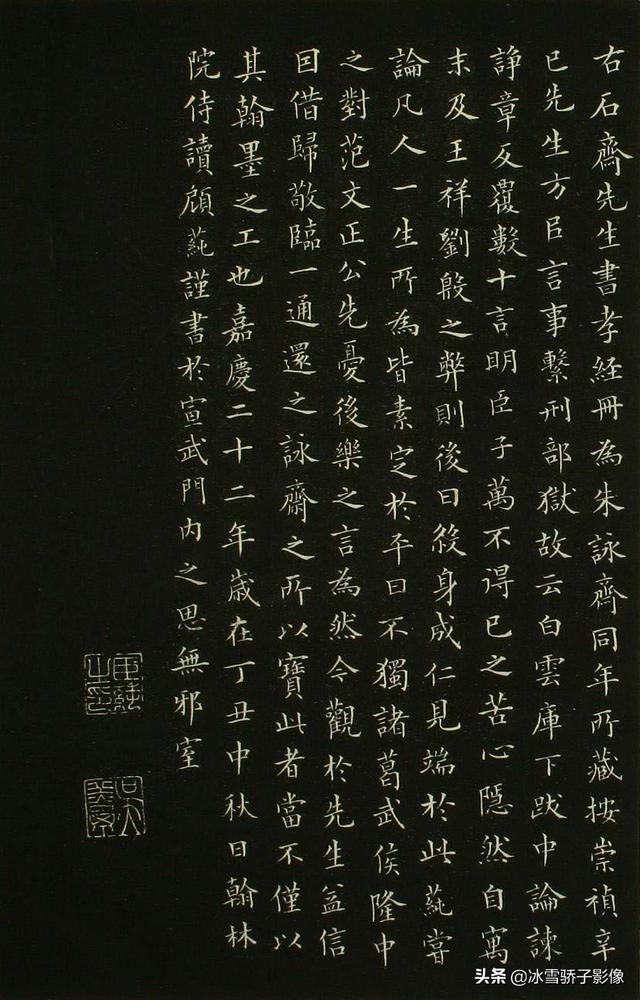 右石齋先生書孝經冊為朱詠齊同年所藏按崇禎辛
巳先生方㠯言事繫刑部獄故云白雲庫下跋中論諫
諍章反覆數十言明臣子萬不得已之苦心隱然自寓
末及王祥劉殷之弊則後日殺身成仁見端於此蒓嘗
論凡人一生所為皆素定於平日不獨諸葛武侯隆中
之對范文正公先憂後樂之言為然今觀於先生益信
因借歸敬臨一通還之詠齋之所以寶此者當不僅以
其翰墨之工也嘉慶二十二年歲在丁丑中秋日翰林
院侍讀顧蒓謹書於宣武門內之思無邪室
头条 @冰雪骄子影像